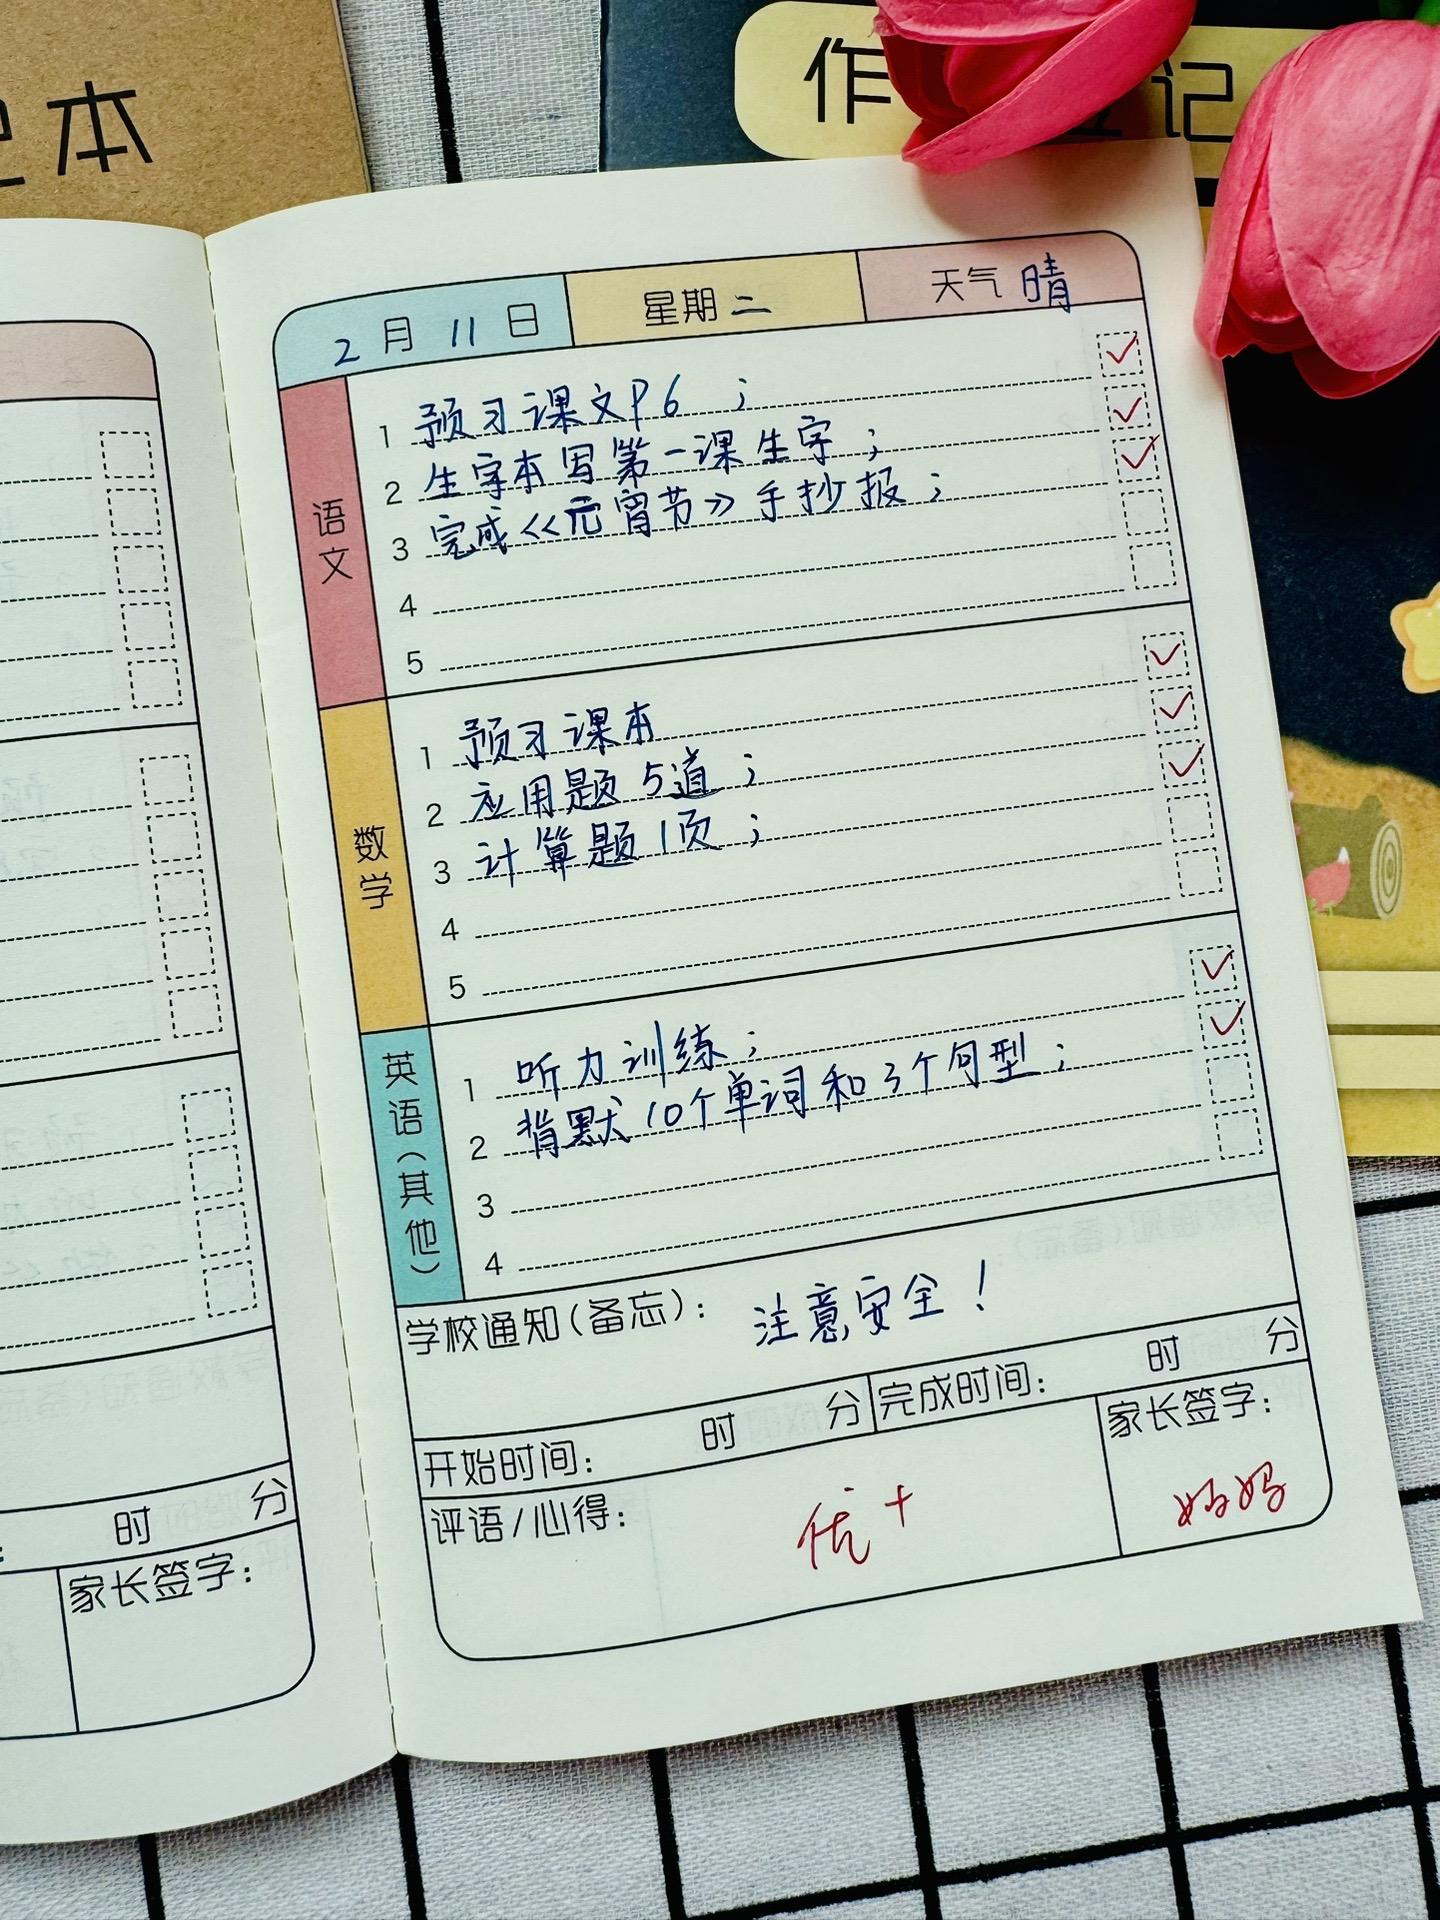 本
作 记
2月11日 星期二 天气 晴
语文
1 预习课文P6；
2 生字本写第一课生字；
3 完成《元宵节》手抄报；
4
5
数学
1 预习课本
2 应用题5道；
3 计算题1页；
4
5
英语（其他）
1 听力训练；
2 背默10个单词和3个句型；
3
4
学校通知（备忘）： 注意安全！
开始时间： 时 分 完成时间： 时 分
评语/心得： 优+ 家长签字： 妈妈
时 分
家长签字：